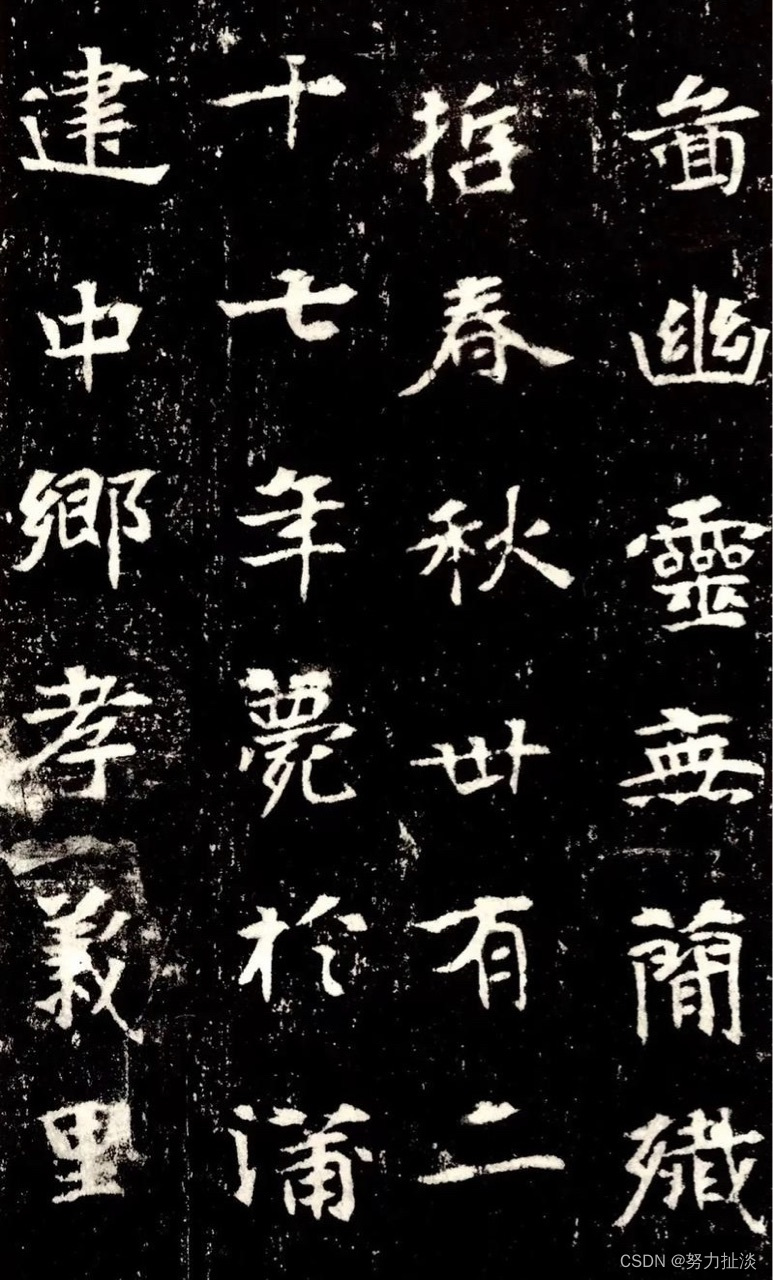 啚幽靈無簡殲
哲春秋丗有二
十七年薨於蒲
建中鄉孝義里
CSDN @努力扯淡